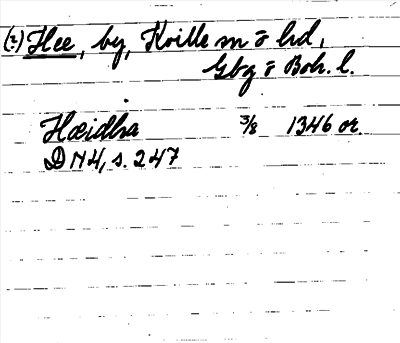 (?) Hee, by, Kville sn o hd,
Gbg o Boh. l.
Hæidha 3/8 1346 or.
DN 4, s. 247